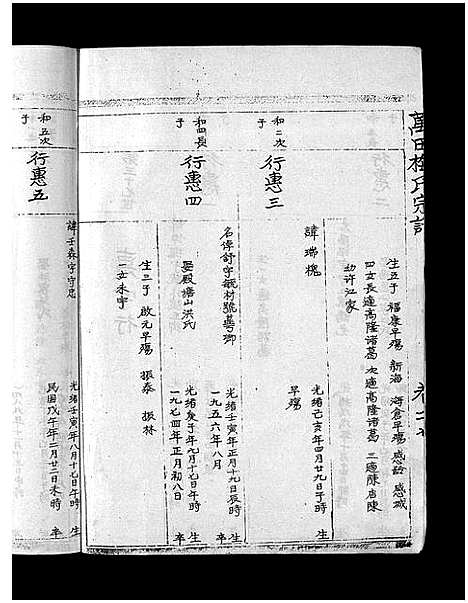 萬田桂氏宗譜
生五子 福康早殤 新海 海倉早殤 感 感
四女長適高隆諸葛 次適高隆諸葛 三適陳店陳
幼許江家
和二次子
行惠三
諱瑞槐
光緒己亥年四月廿九日子時生
早殤
和四長子
行惠四
名偉舒字 材號 卿
光緒壬寅年正月十九日辰時生
一九五六年八月卒
娶殿 山洪氏
光緒庚子年九月十七日午時生
一九七四年正月初八日卒
生三子 啟元早殤 振泰 振林
一女未字
和五次子
行惠五
諱壬森字守忠
光緒壬寅年八月十七日午時生
民國戊午年二月廿二日未時卒